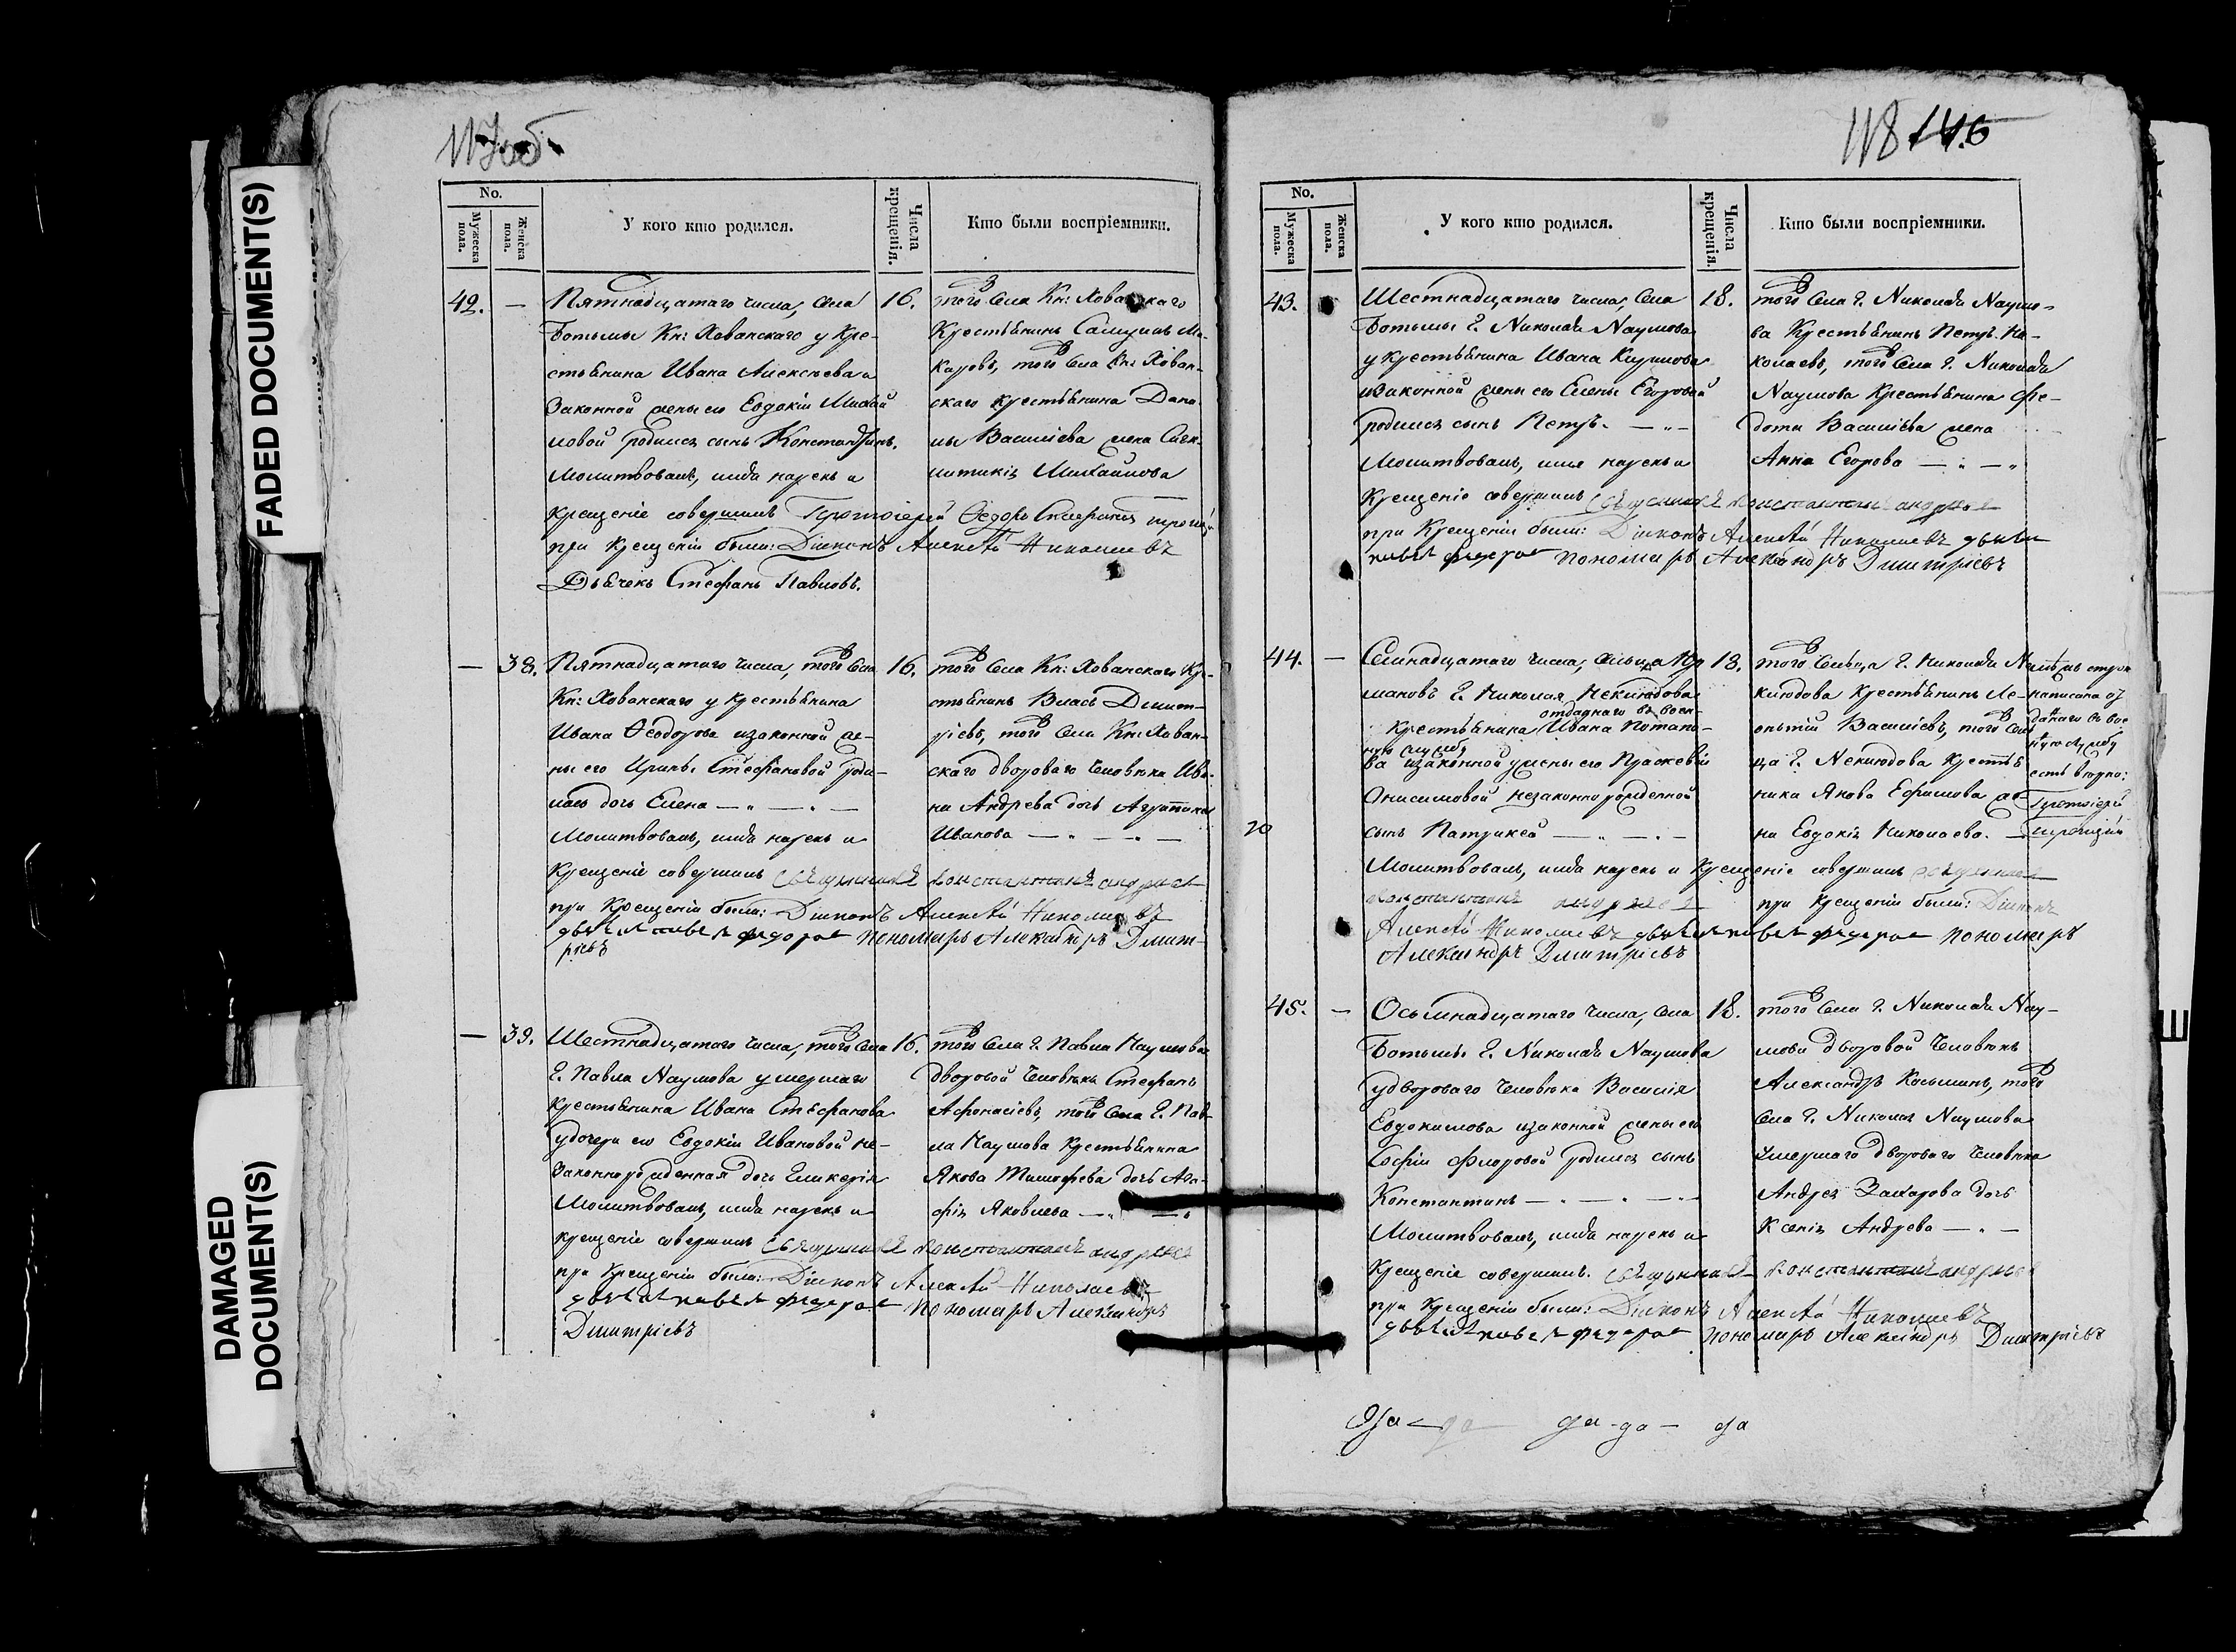 FADED DOCUMENT(S)
DAMAGED
DOCUMENT(S)
117об
No.
Мужеска пола.
Женска пола.
У кого кто родился.
Числа крещенія.
Кто были воспріемники.
42. — Пятнадцатаго числа, села
Ботьмы Кн: Хованскаго у кре-
стьянина Ивана Алексѣева и
законной жены его Евдокіи Михай
ловой родился сынъ Константинъ.
Молитвовалъ, имя нарекъ и
крещеніе совершилъ Протоіерей Ѳедоръ
при крещеніи были: Діаконъ Алексѣй Николаевъ
Дьячекъ Стефанъ Павловъ.
16. того села Кн: Хованскаго
Крестьянинъ Самуилъ Ма-
каровъ, того села Кн: Хован-
скаго крестьянина Дани-
лы Васильева жена
Михайлова
— 38. Пятнадцатаго числа, того села
Кн: Хованскаго у крестьянина
Ивана Ѳеодорова и законной же-
ны его Ирины Стефановой роди-
лась дочь Елена — „ — „ —
Молитвовалъ, имя нарекъ и
крещеніе совершилъ священникъ Константинъ Андреев
при крещеніи были: Діаконъ Алексѣй Николаевъ
пономарь Александръ Дмит-
ріевъ
16. того села Кн: Хованскаго Кре-
стьянинъ Власъ Дмит-
ріевъ, того села Кн: Хован-
скаго двороваго человѣка Ива-
на Андреева дочь Агрипина
Иванова — „ — „ —
— 39. Шестнадцатаго числа, того села
Г. Павла Наумова умершаго
крестьянина Ивана Стефанова
у дочери его Евдокіи Ивановой не-
законнорожденная дочь Гликерія
Молитвовалъ, имя нарекъ и
крещеніе совершилъ священникъ Константинъ Андреев
при крещеніи были: Діаконъ Алексѣй Николаевъ
пономарь Александръ
Дмитріевъ
16. того села Г. Павла Наумова
дворовой человѣкъ Стефанъ
Афонасіевъ, того села Г. Пав-
ла Наумова крестьянина
Якова Тимофеева дочь Ага-
фія Яковлева — „ — „
118 146
No.
Мужеска пола.
Женска пола.
У кого кто родился.
Числа крещенія.
Кто были воспріемники.
43. Шестнадцатаго числа, села
Ботьмы Г. Николая Наумова
у крестьянина Ивана Кирилова
и законной жены его Елены Егоровой
родился сынъ Петръ. — „ —
Молитвовалъ, имя нарекъ и
крещеніе совершилъ священникъ Константинъ Андреев
при крещеніи были: Діаконъ Алексѣй Николаевъ
пономарь Александръ Дмитріевъ
18. того села Г. Николая Наумо-
ва Крестьянинъ Петръ Ни-
колаевъ, того села Г. Николая
Наумова крестьянина Фе-
дота Васильева жена
Анна Егорова — „ — „
44. — Семнадцатаго числа, сельца
Г. Николая Неклюдова
отданнаго въ воен-
Крестьянина Ивана Потапо-
ную службу
ва и законной жены его Прасковьи
Онисимовой незаконно рожденной
сынъ Патрикей — „ — „ —
Молитвовалъ, имя нарекъ и крещеніе совершилъ священникъ
Константинъ Андреев при крещеніи были: Діаконъ
Алексѣй Николаевъ пономарь
Александръ Дмитріевъ
18. того сельца Г. Николая Не
клюдова Крестьянинъ Ле-
онтій Васильевъ, того сель
ца Г. Неклюдова крестья
нина Якова Ефимова же-
на Евдокія Николаева. —
строк
написано от
даннаго в вое
ную службу
есть верно:
Протоіерей
20
45. — Осьмнадцатаго числа, села
Ботьмы Г. Николая Наумова
у двороваго человѣка Василія
Евдокимова и законной жены его
Софіи Флоровой родился сынъ
Константинъ — „ — „ —
Молитвовалъ, имя нарекъ и
крещеніе совершилъ. священникъ Константинъ Андреев
при крещеніи были: Діаконъ Алексѣй Николаевъ
пономарь Александръ Дмитріевъ
18. того села Г. Николая Нау-
мова дворовой человѣкъ
Александръ Косьминъ, того
села Г. Николая Наумова
умершаго двороваго человѣка
Андрея Захарова дочь
Ксенія Андреева — „ —